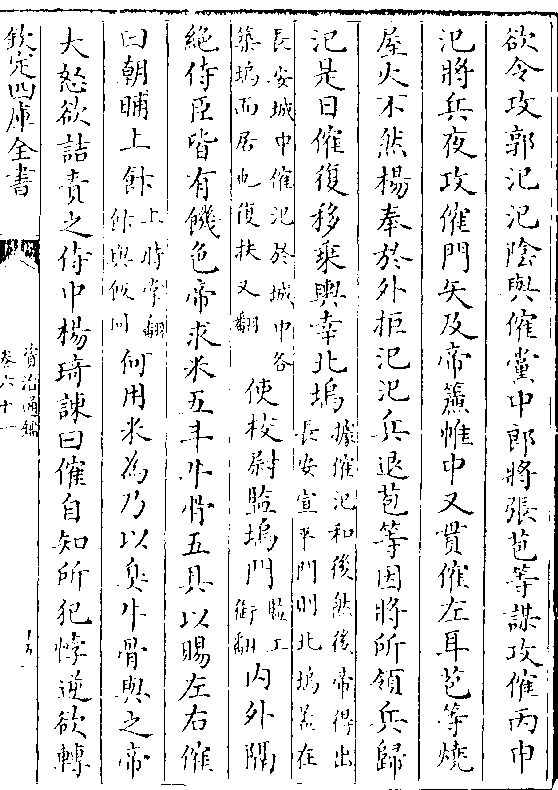 欲令攻郭汜汜陰與傕黨中郎將張苞等謀攻傕丙申
汜將兵夜攻傕門矢及帝簾帷中又貫傕左耳苞等燒
屋火不然楊奉於外拒汜汜兵退苞等因將所領兵歸
汜是日傕復移乗輿幸北塢據傕汜和後然後帝得出
長安宣平門則北塢葢在
長安城中傕汜於城中各
築塢而居也復扶又翻
使校尉監塢門監工
銜翻
内外隔
絶侍臣皆有饑色帝求米五斗牛骨五具以賜左右傕
曰朝晡上飰上時掌翻
飰與飯同
何用米為乃以臭牛骨與之帝
大怒欲詰責之侍中楊琦諫曰傕自知所犯悖逆欲轉
欽定四庫全書
資治通鑑
卷六十一